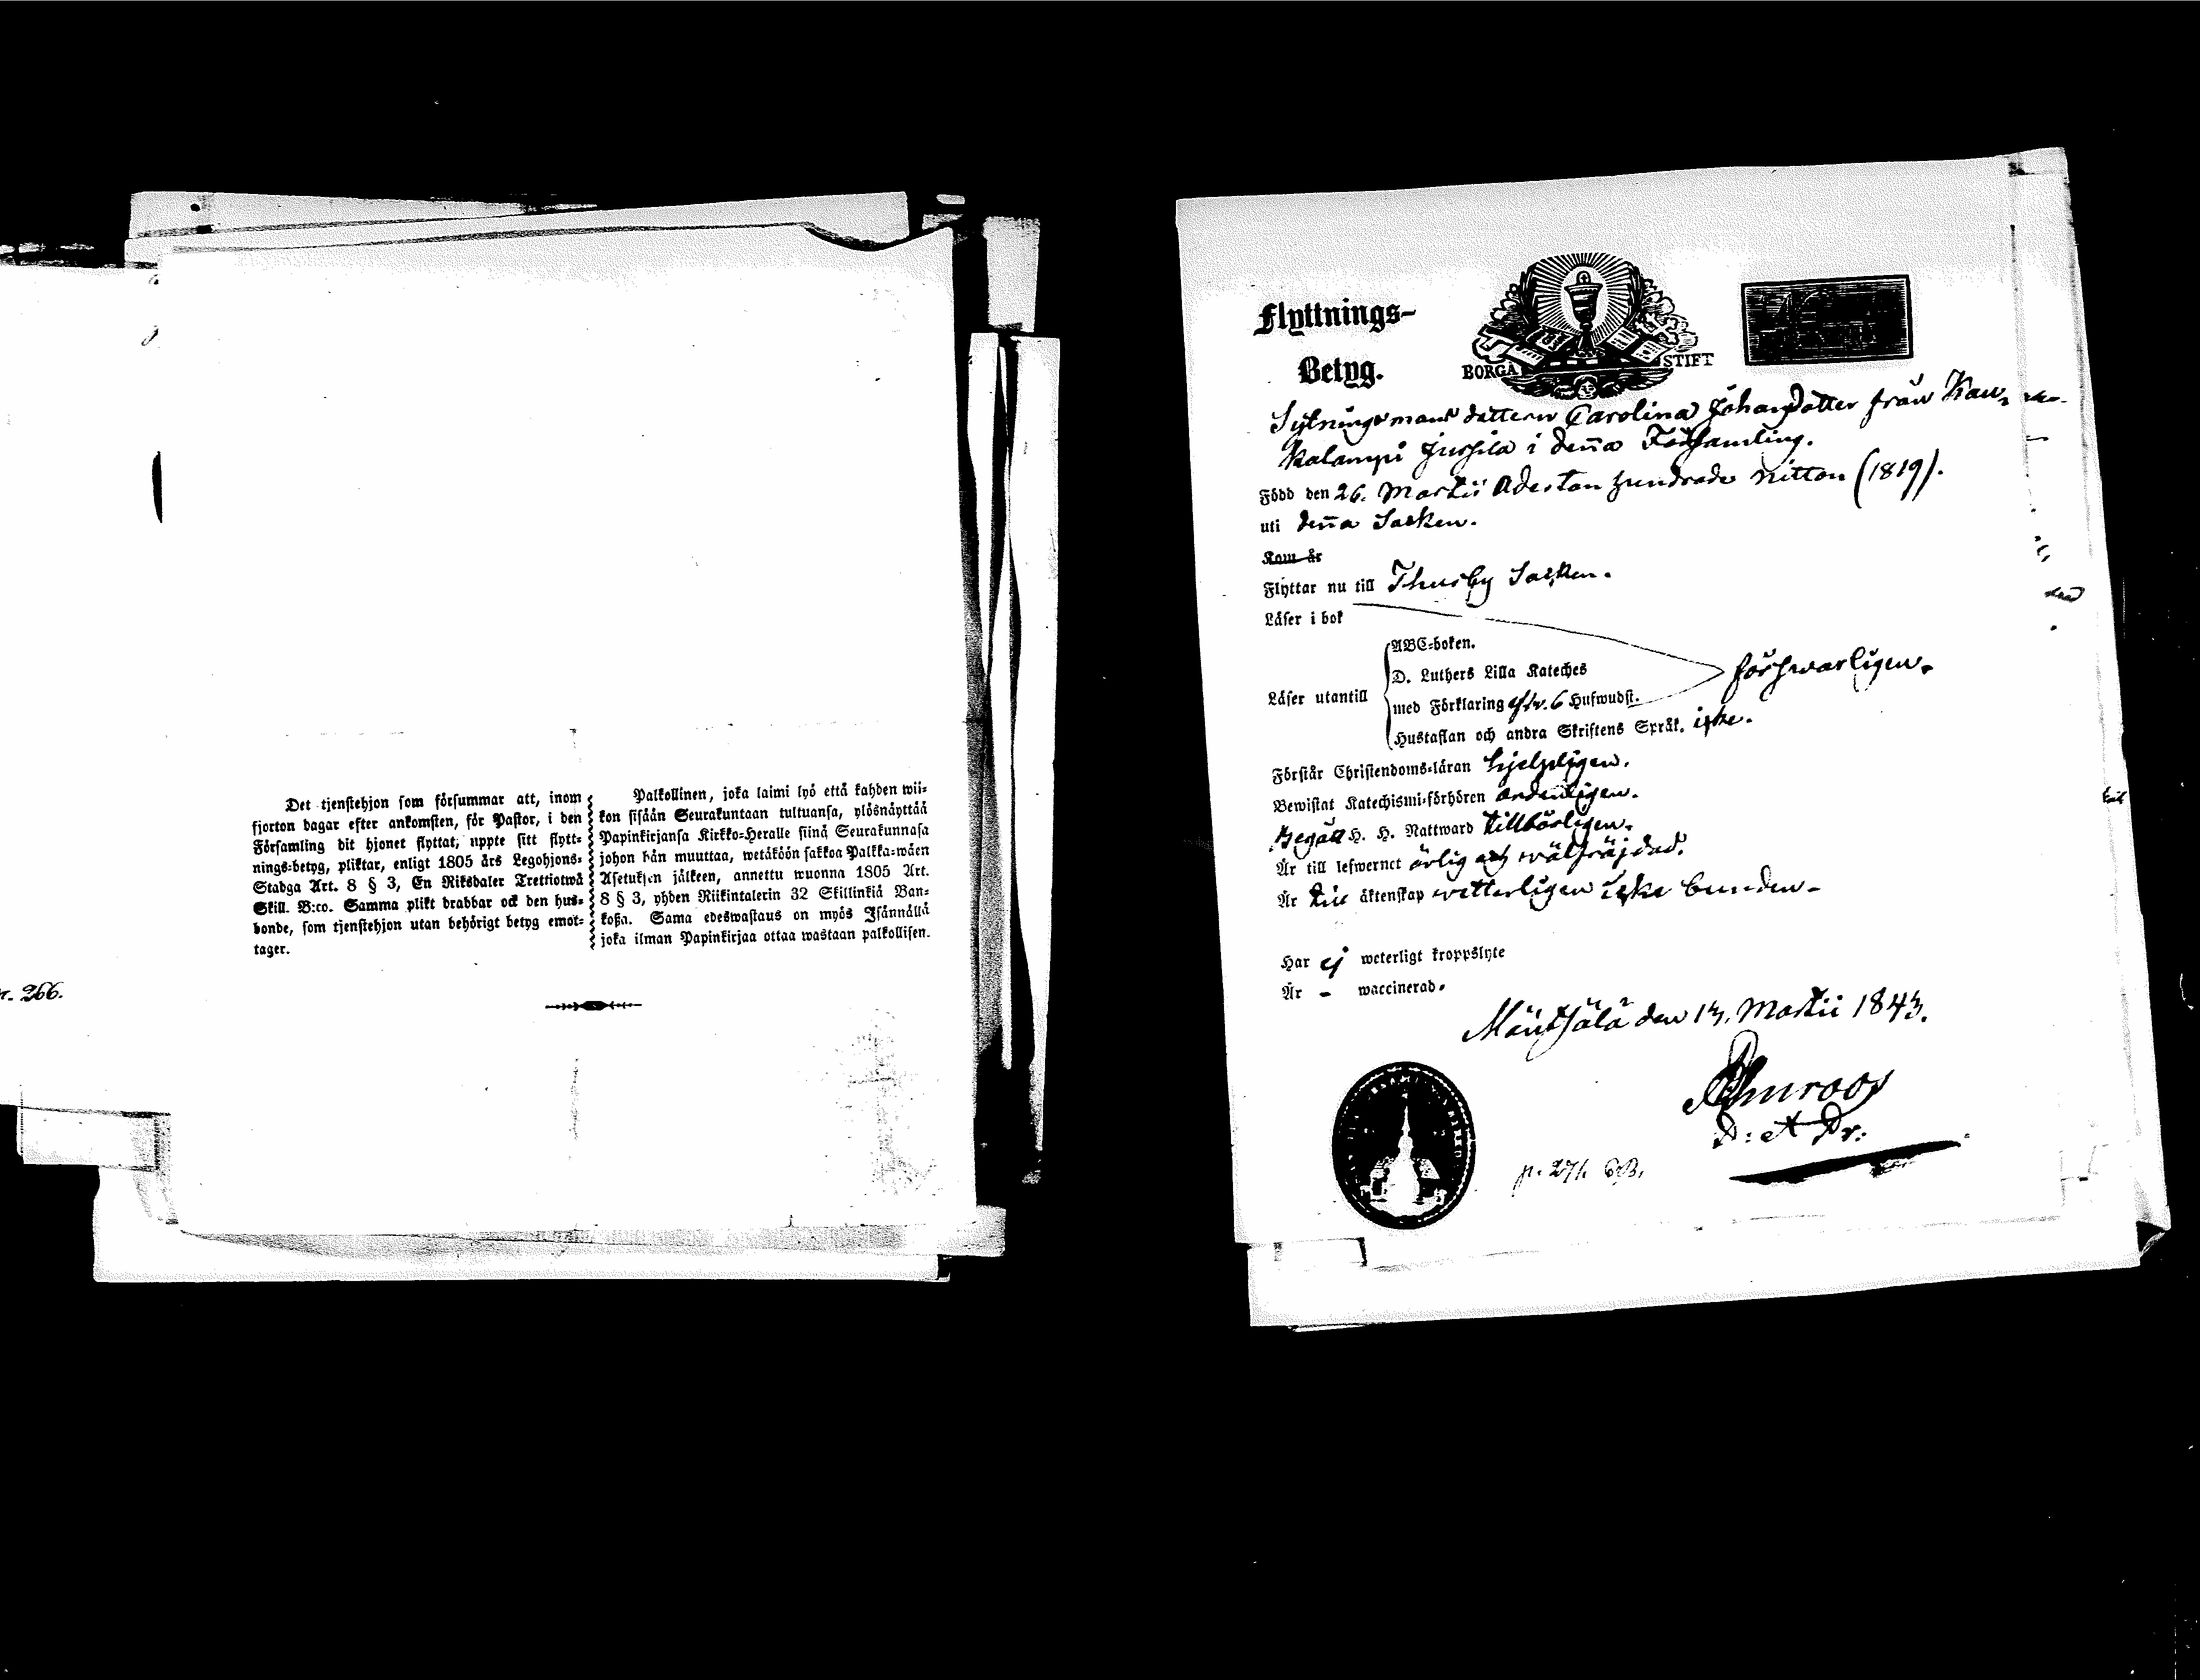 Det tjenstehjon som försummar att, inom
fjorton dagar efter ankomsten, för Pastor, i den
Församling dit hjonet flyttat, uppte sitt flytt-
nings-betyg, pliktar, enligt 1805 års Legohjons-
Stadga Art. 8 § 3, En Riksdaler Trettiotwå
Skill. B:co. Samma plikt drabbar ock den hus-
bonde, som tjenstehjon utan behörigt betyg emot-
tager.
Palkollinen, joka laimi lyö että kahden wii-
kon sisään Seurakuntaan tultuansa, ylösnäyttää
Papinkirjansa Kirkko-Heralle siinä Seurakunnasa
johon hän muuttaa, wetäköön sakkoa Palkka-wäen
Asetuksen jälkeen, annettu wuonna 1805 Art.
8 § 3, yhden Riikintalerin 32 Skillinkiä Ban-
koßa. Sama edeswastaus on myös Isännällä
joka ilman Papinkirjaa ottaa wastaan palkollisen.
266.
Flyttnings-
Betyg.
BORGÅ STIFT
Sytningsmans dottern Carolina Johansdotter från Kau-
kalampi Jussila i denna Församling.
Född den 26. Martii Aderton hundrade nitton (1819).
uti denna Socken.
Kom år
Flyttar nu till Thusby Socken.
Läser i bok
ABC-boken.
D. Luthers Lilla Kateches
Läser utantill
med Förklaring 6 Hufwudst.
försvarligen.
Hustaflan och andra Skriftens Språk. icke.
Förstår Christendoms-läran hjelpligen.
Bewistat Katechismi-förhören ordentligen.
Begått H. H. Nattward tillbörligen.
Är till lefwernet ärlig och wälfräjdad.
Är till äktenskap vetterligen icke bunden.
Har ej weterligt kroppslyte
Är - waccinerad.
Mäntsälä den 13. Martii 1843.
p. 271.